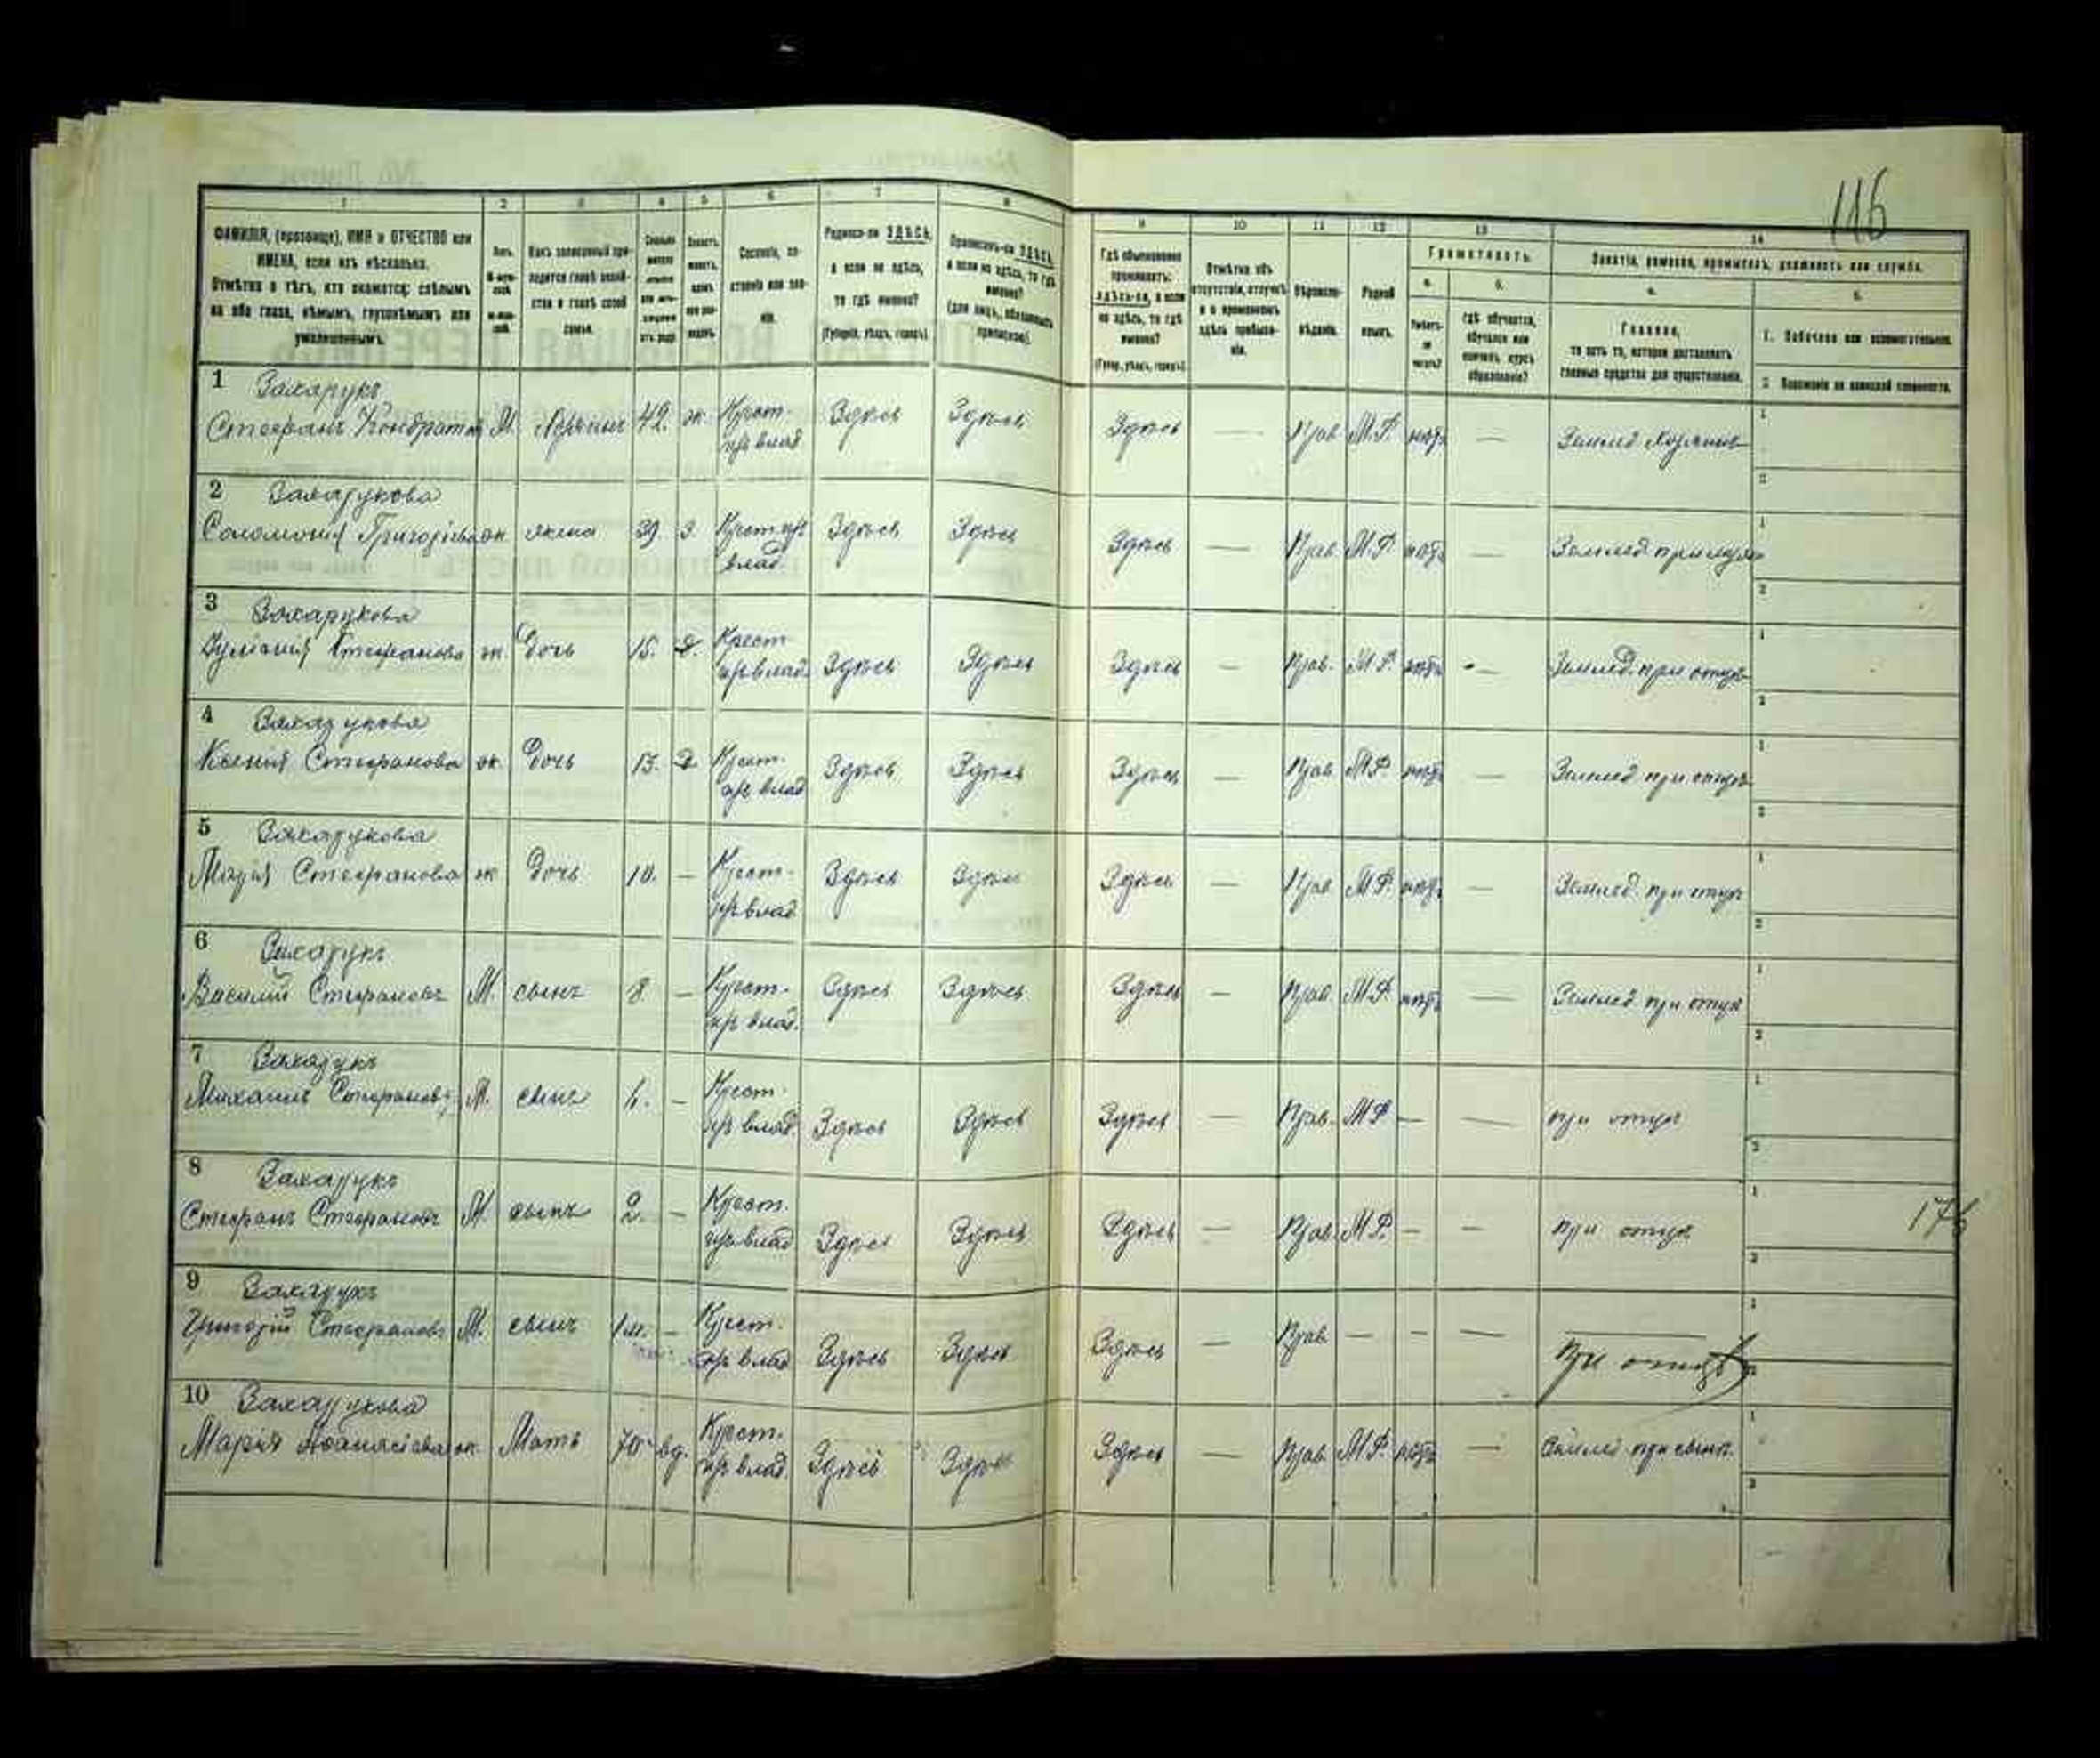 116
1 2 3 4 5 6 7 8 9 10 11 12 13 14
ФАМИЛІЯ, (прозвище), ИМЯ и ОТЧЕСТВО или
ИМЕНА, если ихъ нѣсколько.
Отмѣтка о тѣхъ, кто окажется: слѣпымъ
на оба глаза, нѣмымъ, глухонѣмымъ или
умалишеннымъ.
Полъ.
Какъ записанный при-
ходится главѣ хозяй-
ства и главѣ своей
семьи.
Сословіе, со-
стояніе или зва-
ніе.
Родился-ли ЗДѢСЬ,
а если не здѣсь,
то гдѣ именно?
(Губернія, уѣздъ, городъ)
Приписанъ-ли ЗДѢСЬ,
а если не здѣсь, то гдѣ
именно?
(для лицъ, обязанныхъ
припискою).
Гдѣ обыкновенно
проживаетъ:
здѣсь-ли, а если
не здѣсь, то гдѣ
именно?
(Губер., уѣздъ, городъ)
Отмѣтка объ
отсутствіи, отлучкѣ
и о временномъ
здѣсь пребыва-
ніи.
Вѣроиспо-
вѣданіе.
Родной
языкъ.
Грамотность.
а. б.
Умѣетъ-
ли
читать?
гдѣ обучается,
обучался или
кончилъ курсъ
образованія?
Занятіе, ремесло, промыселъ, должность или служба.
а. б.
Главное,
то есть то, которое доставляетъ
главныя средства для существованія.
1. Побочное или вспомогательное.
2. Положеніе по воинской повинности.
1 Захарукъ
Стефанъ Кондратов М. Хозяинъ 42. ж. Крест. Здѣсь Здѣсь Здѣсь — Прав. М.Р. нѣтъ — Землед Хозяинъ
из влад
2 Захарукова
Соломонія Григорьева ж жена 39. З. Крест из Здѣсь Здѣсь Здѣсь — Прав. М.Р. нѣтъ —
влад
3 Захарукова
Стефанова ж. Дочь 15. Д. Крест Здѣсь Здѣсь Здѣсь — Прав. М.Р. нѣтъ — Землед. при отцѣ
из влад.
4 Захарукова
Ксенія Стефанова ж. Дочь 13. Д. Крест. Здѣсь Здѣсь Здѣсь — Прав М.Р. нѣтъ — Землед при отцѣ
из влад
5 Захарукова
Марія Стефанова ж Дочь 10. — Крест. Здѣсь Здѣсь Здѣсь — Прав М.Р. нѣтъ — Землед. при отцѣ
из влад
6 Захарукъ
Василій Стефановъ М. сынъ 8 — Крест. Здѣсь Здѣсь Здѣсь — Прав М.Р. нѣтъ — Землед при отцѣ
из влад.
7 Захарукъ
Михаилъ Стефановъ М. сынъ — Крест. Здѣсь Здѣсь Здѣсь — Прав. М.Р. — — при отцѣ
из влад.
8 Захарукъ
Стефанъ Стефановъ М. сынъ 2. — Крест. Здѣсь Здѣсь Здѣсь — Прав. М.Р. — — при отцѣ
из влад
9 Захарукъ
Григорій Стефановъ М. сынъ 1 м. — Крест. Здѣсь Здѣсь Здѣсь — Прав. — — — при отцѣ
из влад
10 Захарукова
Марія ж. Мать 70 вд. Крест. Здѣсь Здѣсь Здѣсь — Прав. М.Р. нѣтъ — Землед при сынѣ.
из влад.